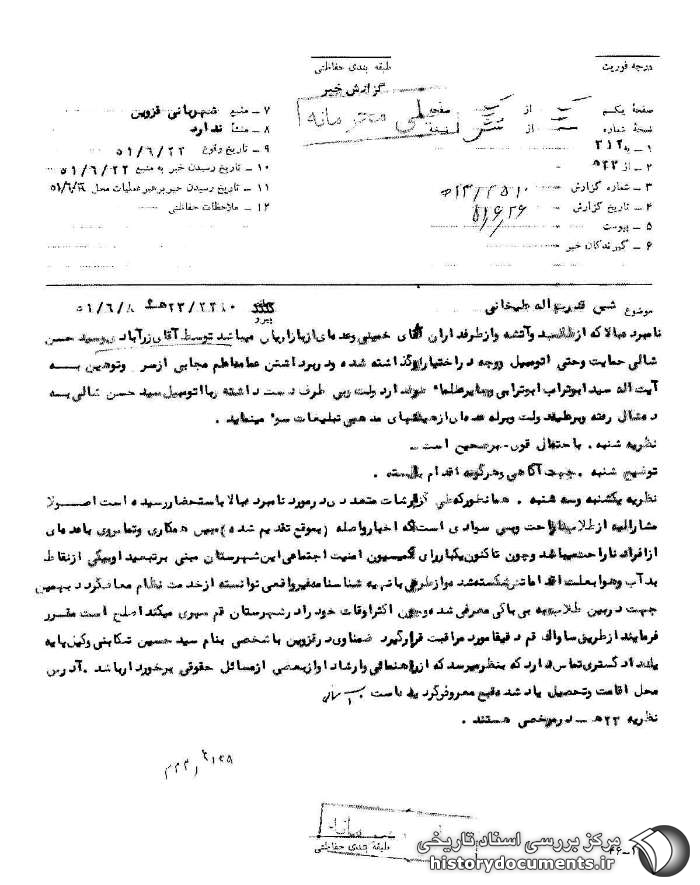 درجه فوریت
طبقه بندی حفاظتی
گزارش خبر
خیلی محرمانه
صفحهٔ یکم از
نسخهٔ شماره از
۱ - به ۳۱۲
۲ - از ۵۲۳
۳ - شماره گزارش
۴ - تاریخ گزارش ۵۱٫۶٫۲۶
۵ - پیوست
۶ - گیرندگان خبر
۷ - منبع شهربانی قزوین
۸ - منشأ ندارد
۹ - تاریخ وقوع ۵۱/۶/۲۲
۱۰ - تاریخ رسیدن خبر به منبع ۵۱/۶/۲۲
۱۱ - تاریخ رسیدن خبر برهبر عملیات محل
۱۲ - ملاحظات حفاظتی
موضوع شیخ قدرت اله علیخانی
پیرو ۵۱/۶/۸
نامبرد مبالا که از طلاب و از طرفداران آقای خمینی وعده ای از بازاریان میباشد توسط آقای زرآبادی و سید حسن
شالی حمایت وحتی اتومبیل ووجه در اختیار گذاشته شده ودر برداشتن عمامه اعظم مجابی از سر وتوهین به
آیت اله سید ابوتراب ابوترابی وسایر علماء دارد و با اتومبیل سید حسن شالی به
شمال رفته وبر علیه دولت وبر له عده ای از تبلیغات سوء مینماید .
نظریه شنبه . با احتمال قوی خبر صحیح است -
توضیح شنبه . جهت آگاهی وهرگونه اقدام بایسته .
نظریه یکشنبه وسه شنبه . همانطور که طی گزارشات متعددی در مورد نامبرد مبالا باستحضار رسیده است اصولا
مشارالیه از طلاب ناراحت وبی سوادی است که اخبار واصله (بموقع تقدیم شده) مبین همکاری وتماس وی با عده ای
از افراد ناراحت میباشد وچون تاکنون یکبار رای کمیسیون امنیت اجتماعی این شهرستان مبنی بر تبعید او بیکی از نقاط
بد آب وهوا بعلت شکسته شد واز طرفی با تهیه شناسنامه غیر واقعی توانسته از خدمت نظام معاف گردد بهمین
جهت در بین طلاب به بی باکی معرفی شده وچون اکثر اوقات خود را در شهرستان قم سپری میکند اصلح است مقرر
فرمایند از طریق ساواک قم دقیقا مورد مراقبت قرار گیرد ضمنا وی در قزوین با شخصی بنام سید حسین تنکابنی وکیل پایه
یک دادگستری تماس دارد که بنظر میرسد که از راهنمائی وارشاد او از بعضی از مسائل حقوقی برخوردار باشد . آدرس
محل اقامت وتحصیل یاد شده قبلا معروض گردیده است
نظریه ۲۳ هـ - در مرخصی هستند .
طبقه بندی حفاظتی
مرکز بررسی اسناد تاریخی
historydocuments.ir